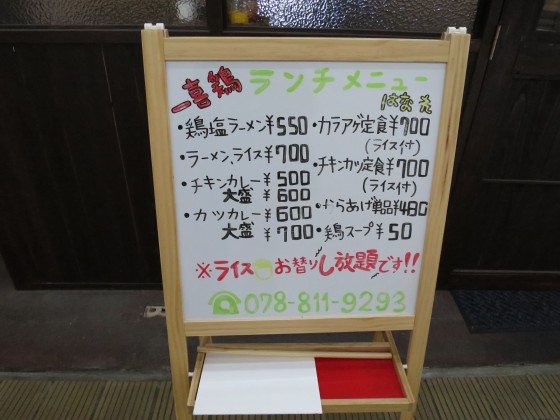 一喜鶏 ランチメニュー
・鶏塩ラーメン¥550
・ラーメン、ライス¥700
・チキンカレー¥500
大盛¥600
・カツカレー¥600
大盛¥700
・カラアゲ定食¥700
(ライス付)
・チキンカツ定食¥700
(ライス付)
・からあげ単品¥480
・鶏スープ¥50
※ライスお替りし放題です!!
078-811-9293